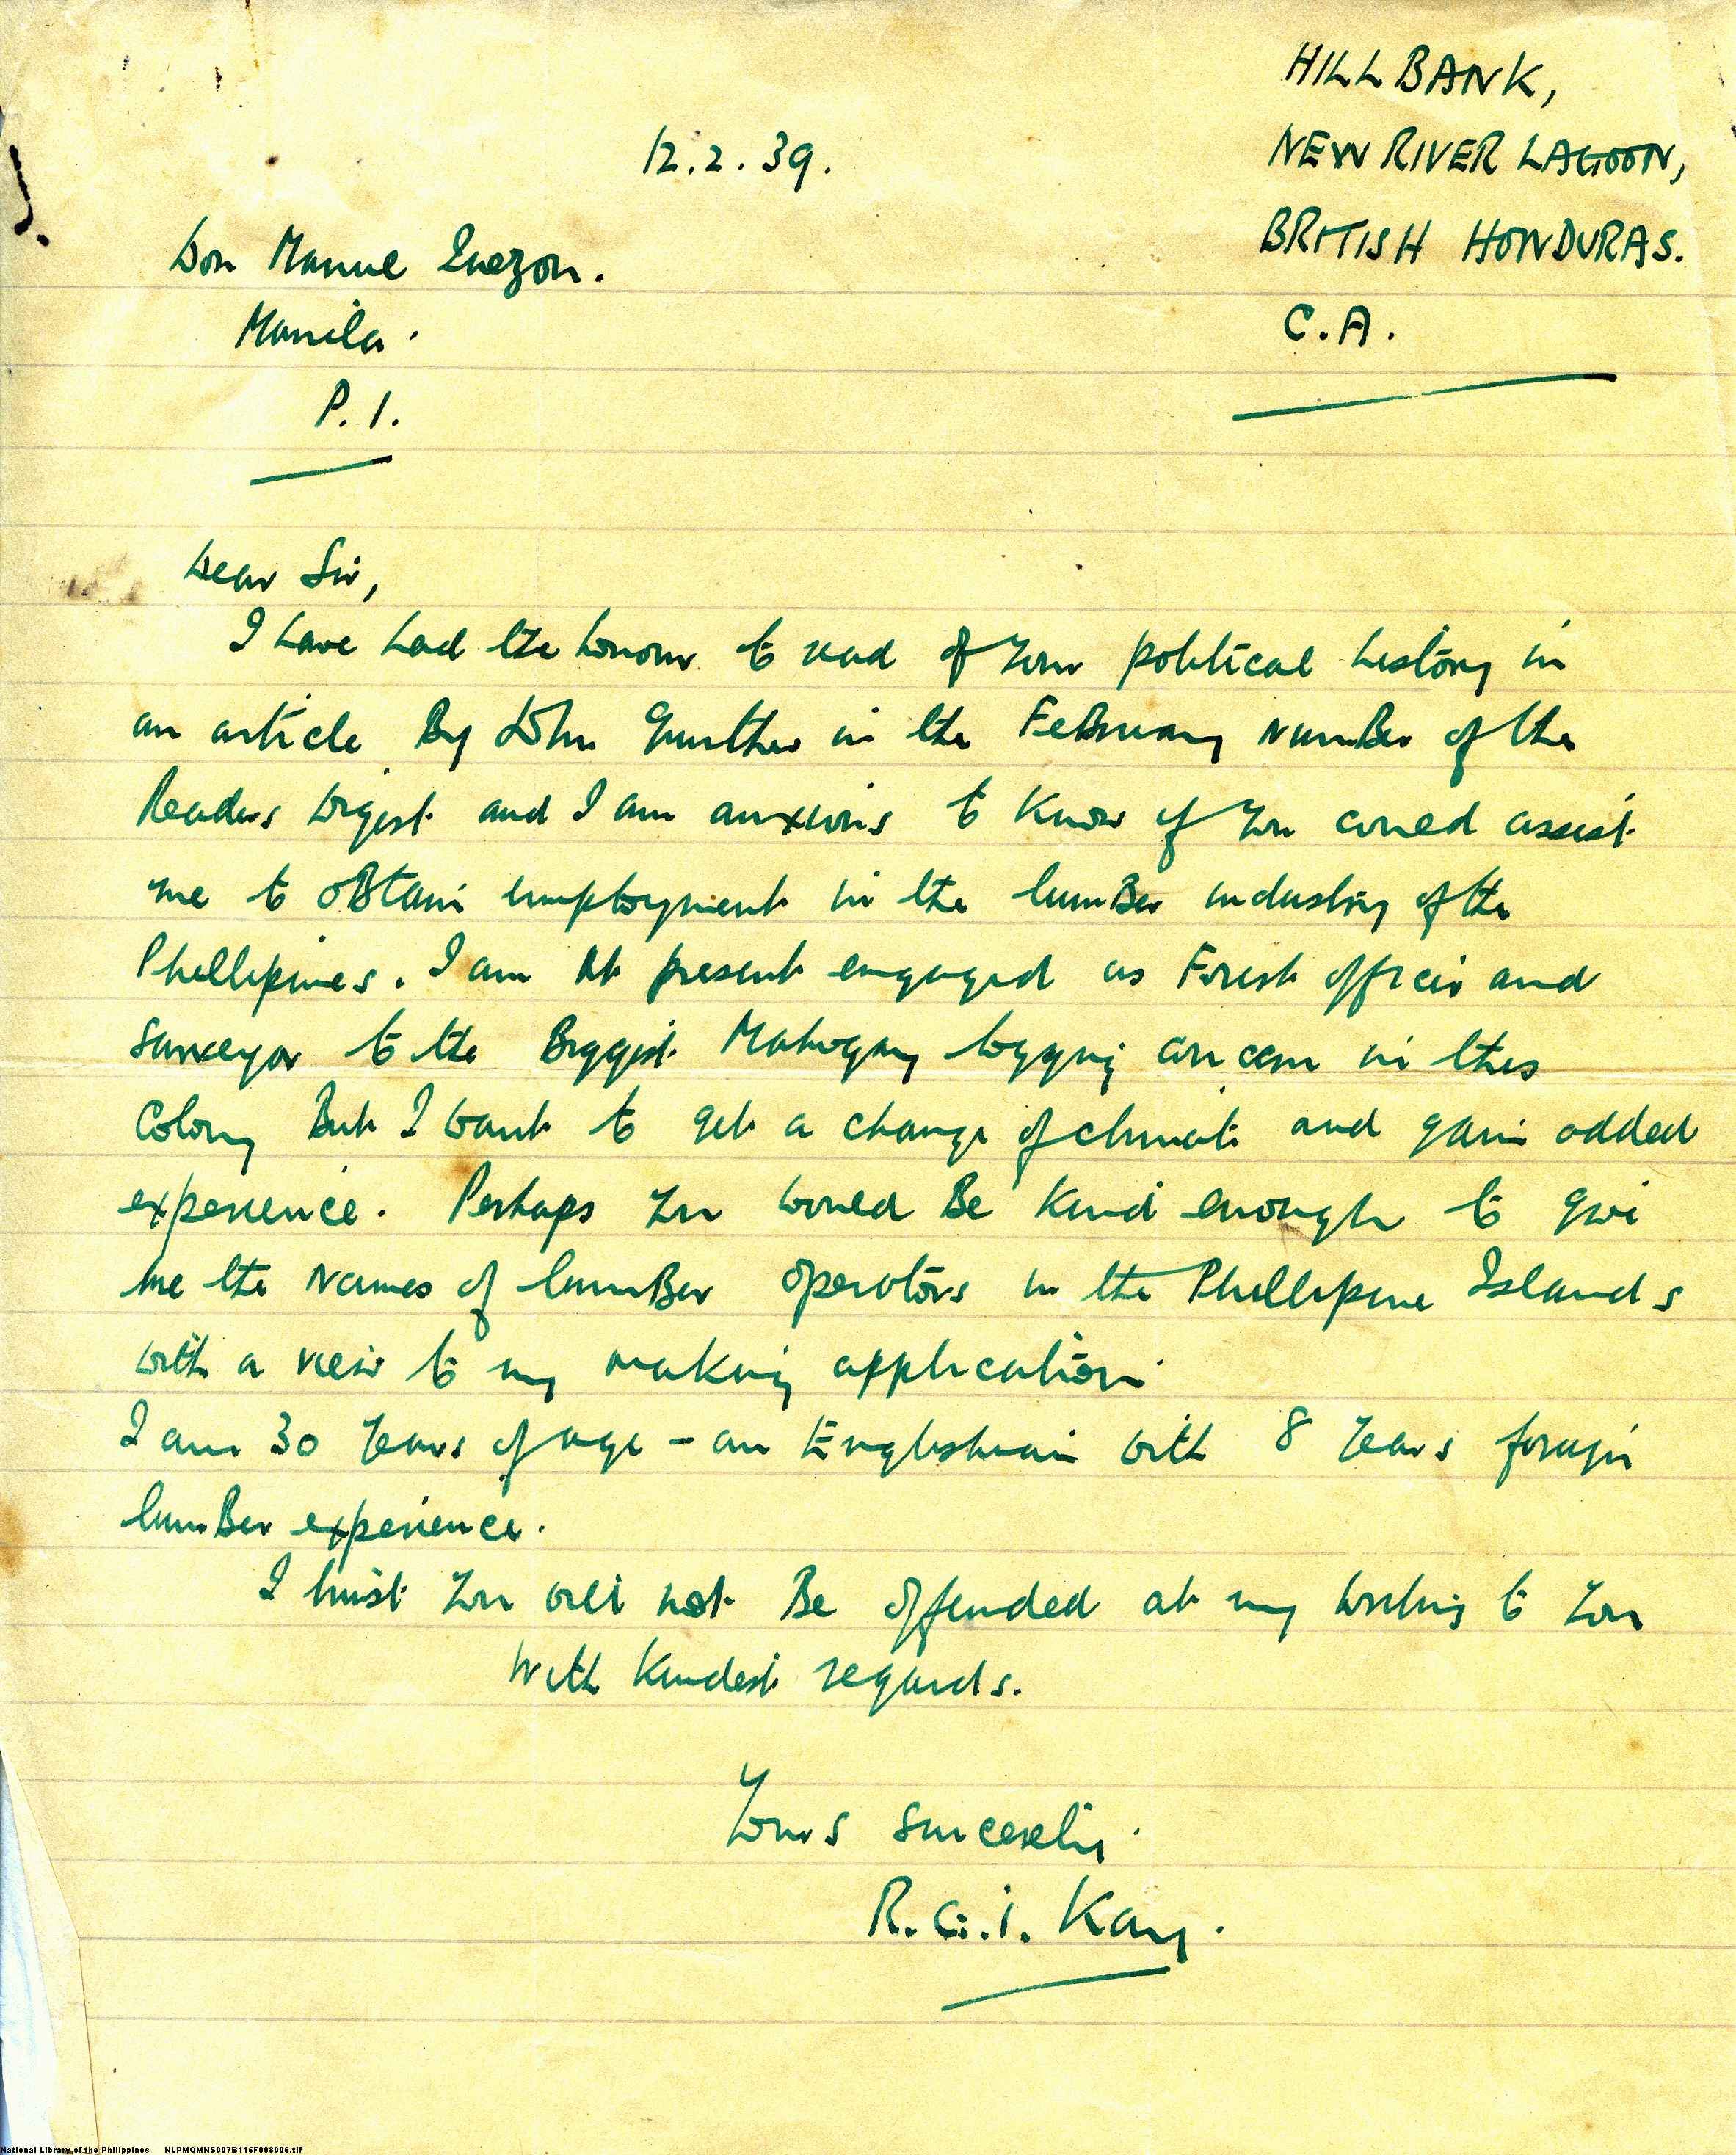 HILL BANK,
NEW RIVER LAGOON,
BRITISH HONDURAS.
C.A.
12.2.39.
Don Manuel Quezon.
Manila.
P.I.
Dear Sir,
I have had the honour to read of your political history in
an article By John Gunther in the February Number of the
Readers Digest and I am anxious to know if you could assist
me to oBtain employment in the lumBer industry of the
Phillipines. I am at present engaged as Forest officer and
surveyor to the Biggest Mahogany logging concern in this
Colony But I want to get a change of climate and gain added
experience. Perhaps you would Be kind enough to give
me the names of lumBer operators in the Phillipine Islands
with a view to my making application.
I am 30 years of age - an Englishman with 8 years foreign
lumBer experience.
I trust you will not Be offended at my writing to you
With kindest regards.
Yours sincerely.
R.G.I. Kay.
National Library of the Philippines NLPMQMNS007B115F008005.tif